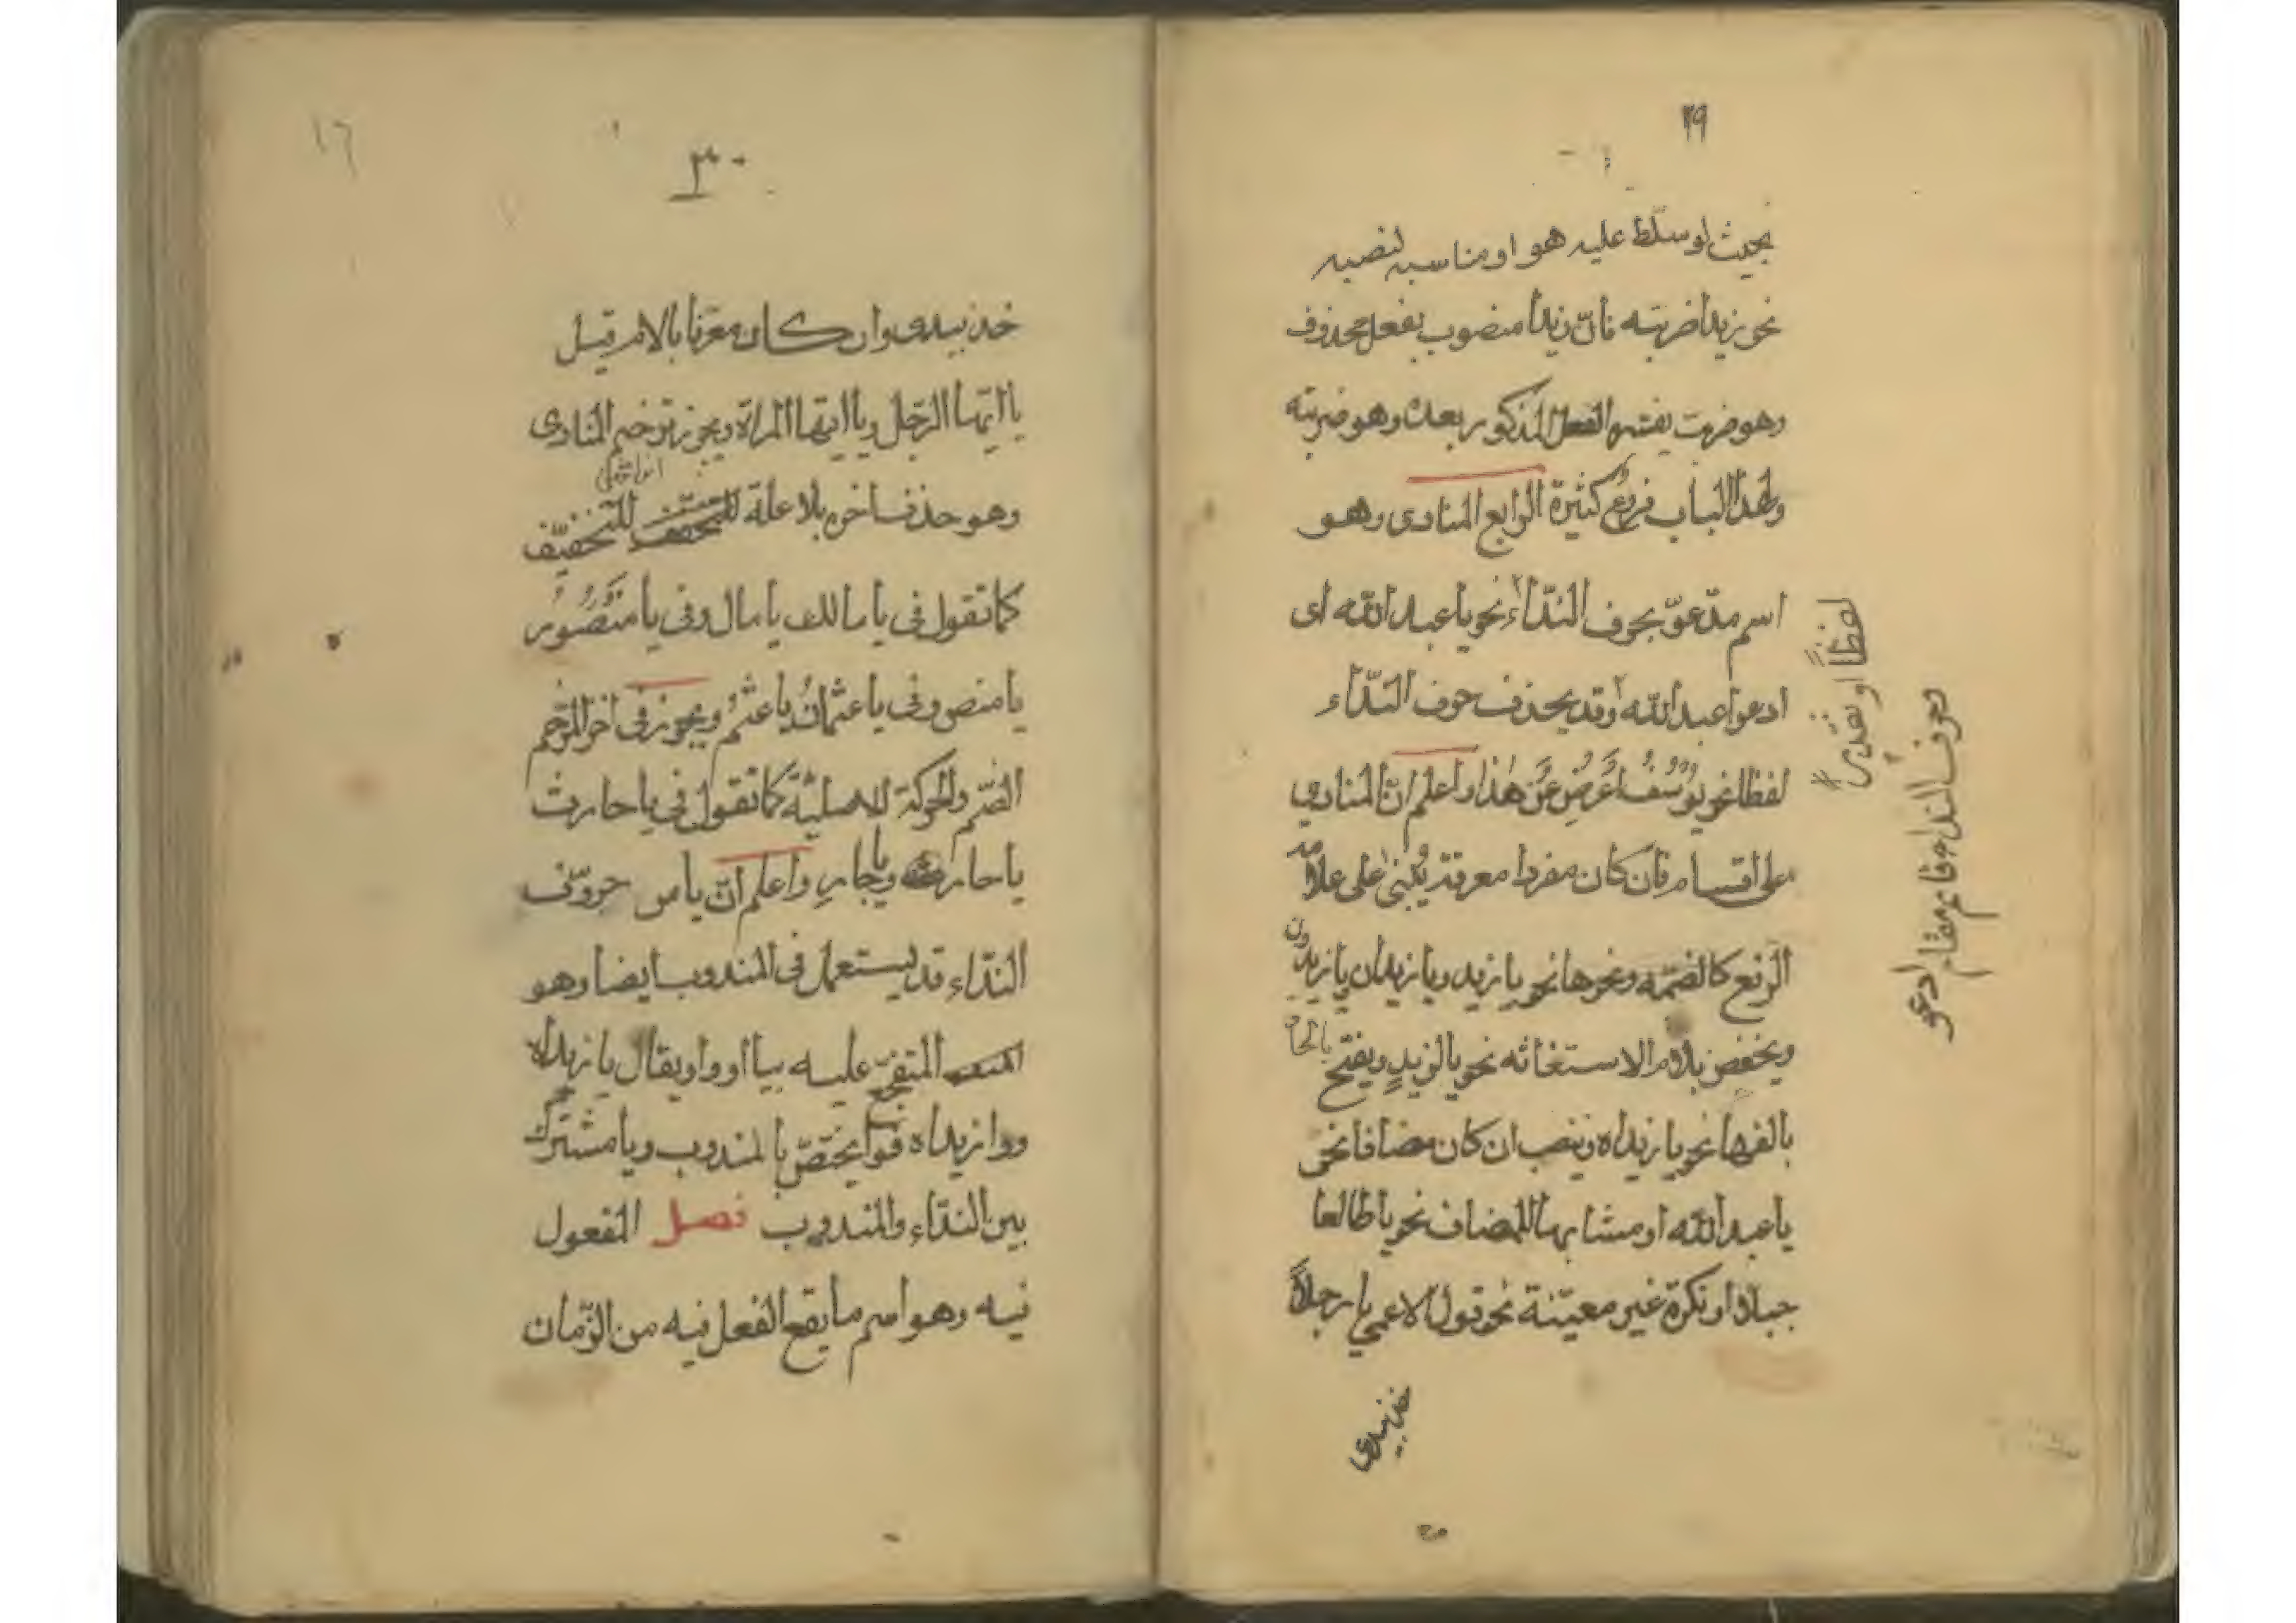 ٢٩
بحيث لو سلّط عليه هو او مناسبه لنصبه
نحو زيدا ضربته فانّ زيدا منصوب بفعل محذوف
وهو ضربت يفسّره الفعل المذكور بعده وهو ضربته
ولهذا الباب فروع كثيرة الرابع المنادى وهو
اسم مدعوّ بحرف النّداء نحو يا عبد الله اى
ادعوا عبد الله وقد يحذف حرف النّداء
لفظا نحو يُوسُفُ اَعْرِضْ عَنْ هٰذا واعلم انّ المنادى
على اقسام فان كان مفردا معرفة يُبنى على علامة
الرّفع كالضمّه ونحوها نحو يا زيد ويا زيدان يا زيدون
ويخفض بلام الاستغاثه نحو يا لزيدٍ ويفتح بالحاق
بالفها نحو يا زيداه وينصب ان كان مضافا نحو
يا عبد الله او مشابها للمضاف نحو يا طالعا
جبلا او نكرة غير معيّنة نحو قول الاعمى يا رجلاً
خذ بيدى
لفظاً او تقديراً
وحرف النداء قائم مقام ادعو
٣٠
١٦
خذ بيدى وان كان معرّفا بالام قيل
يا ايّها الرّجل ويا ايتها المراة ويجوز ترخيم المنادى
وهو حذف اخره بلا علة للتخفيف
كما تقول فى يا مالك يا مال وفى يا منصور
يا منص وفى يا عثمان يا عثمُ ويجوز فى اخر المرّخم
الضّم والحركة الاصليّة كما تقول فى يا حارث
يا حارُ ويا حارِ واعلم انّ يا من حروف
النّداء قد يستعمل فى المندوب ايضا وهو
المتفجّع عليه بيا او وا ويقال يا زيداه
ووا زيداه فوا يختصّ بالمندوب ويا مشترك
بين النّداء والمندوب فصل المفعول
فيه وهو اسم ما يقع الفعل فيه من الزّمان